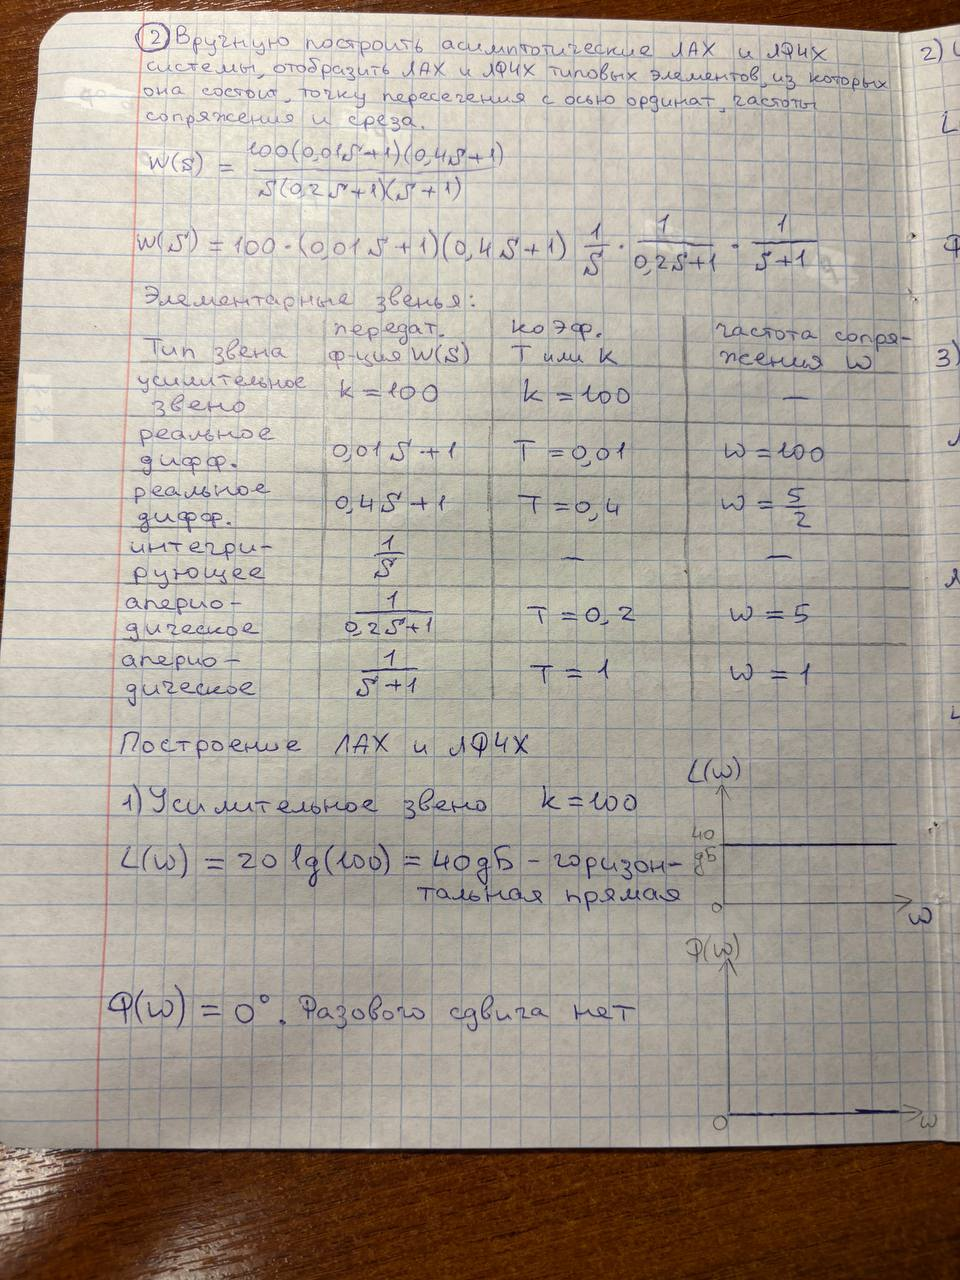 2 Вручную построить асимптотические ЛАХ и ЛФЧХ
системы, отобразить ЛАХ и ЛФЧХ типовых элементов, из которых
она состоит, точку пересечения с осью ординат, частоты
сопряжения и среза.
W(S) = 100(0,01S+1)(0,4S+1) / S(0,2S+1)(S+1)
W(S) = 100·(0,01S+1)(0,4S+1) 1/S · 1/(0,2S+1) · 1/(S+1)
Элементарные звенья:
Тип звена | передат. ф-ция W(S) | коэф. T или K | частота сопряжения W
усилительное звено | k = 100 | k = 100 | —
реальное дифф. | 0,01S+1 | T = 0,01 | W = 100
реальное дифф. | 0,4S+1 | T = 0,4 | W = 5/2
интегрирующее | 1/S | — | —
апериодическое | 1/(0,2S+1) | T = 0,2 | W = 5
апериодическое | 1/(S+1) | T = 1 | W = 1
Построение ЛАХ и ЛФЧХ
1) Усилительное звено k = 100
L(w) = 20 lg(100) = 40дБ – горизон-
тальная прямая
L(w)
40
дБ
0
w
Φ(w) = 0°. Фазового сдвига нет
φ(w)
0
w
2)
3)